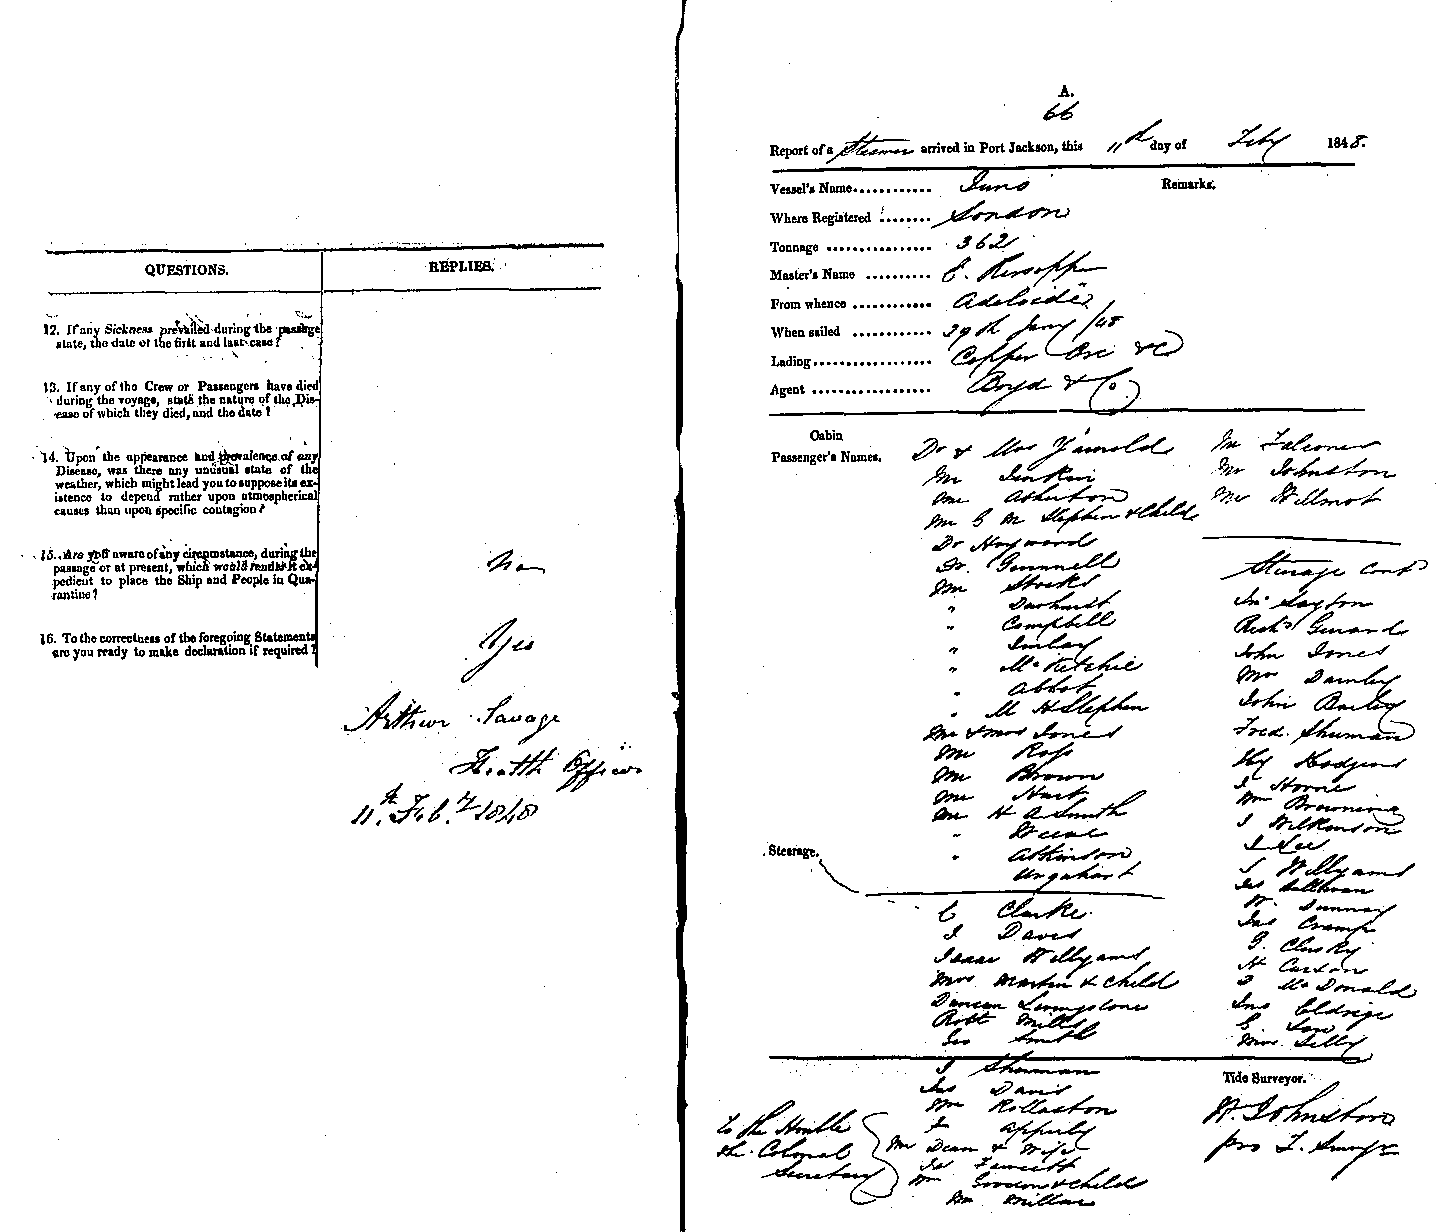 QUESTIONS. REPLIES.
12. If any Sickness prevailed during the passage
state, the date of the first and last case?
13. If any of the Crew or Passengers have died
during the voyage, state the nature of the Dis-
ease of which they died, and the date?
14. Upon the appearance and prevalence of any
Disease, was there any unusual state of the
weather, which might lead you to suppose its ex-
istence to depend rather upon atmospherical
causes than upon specific contagion?
15. Are you aware of any circumstance, during the
passage or at present, which would render it ex-
pedient to place the Ship and People in Qua-
rantine?
No
16. To the correctness of the foregoing Statements
are you ready to make declaration if required?
Yes
Arthur Savage
Health Officer
11th Feby 1848
A.
66
Report of a Steamer arrived in Port Jackson, this 11th day of Feby 1848.
Vessel's Name............ Juno
Remarks.
Where Registered ........ London
Tonnage ................ 362
Master's Name .......... E.
From whence ............ Adelaide
When sailed ............ 29th Jany /48
Lading.................. Copper Ore &c
Agent .................. Boyd & Co
Cabin
Passenger's Names.
Dr & Mrs Yarnold
Mr Jenkin
Mr Atherton
Mr G M Stephen & Child
Dr Hayward
Dr. Gummell
Mr Stocks
" Darhurst
" Campbell
" Imlay
" McKetchie
" Abbot
" M H Stephen
Mr & Mrs Jones
Mr Ross
Mr Brown
Mr Hart
Mr H A Smith
"
" Atkinson
Urquhart
Mr Falconer
Mr Johnston
Mr Willmot
Steerage.
C Clarke
J Davis
Isaac Willyams
Mrs Martin & Child
Duncan Livingstone
Robt Mills
Geo Smith
J Shuman
Jas Davis
Wm Rollaston
J Apperly
Mr Dean & Wife
Jas Fawcett
Mr Gordon & Child
Mr Millar
Steerage cont
Jno Layton
Richd Gerard
John Jones
Mrs Darnley
John Bailey
Fred. Shuman
Hy Hodgens
J Horne
Wm Browning
J Wilkinson
J Lee
S Willyams
Jas Sullivan
W. Dunnay
Jas Cramp
G. Clusky
H Carson
D McDonald
Jno Eldrige
E Law
Mrs Tilly
To the Honble
the Colonial
Secretary
Tide Surveyor.
W. Johnston
pro T. Savage